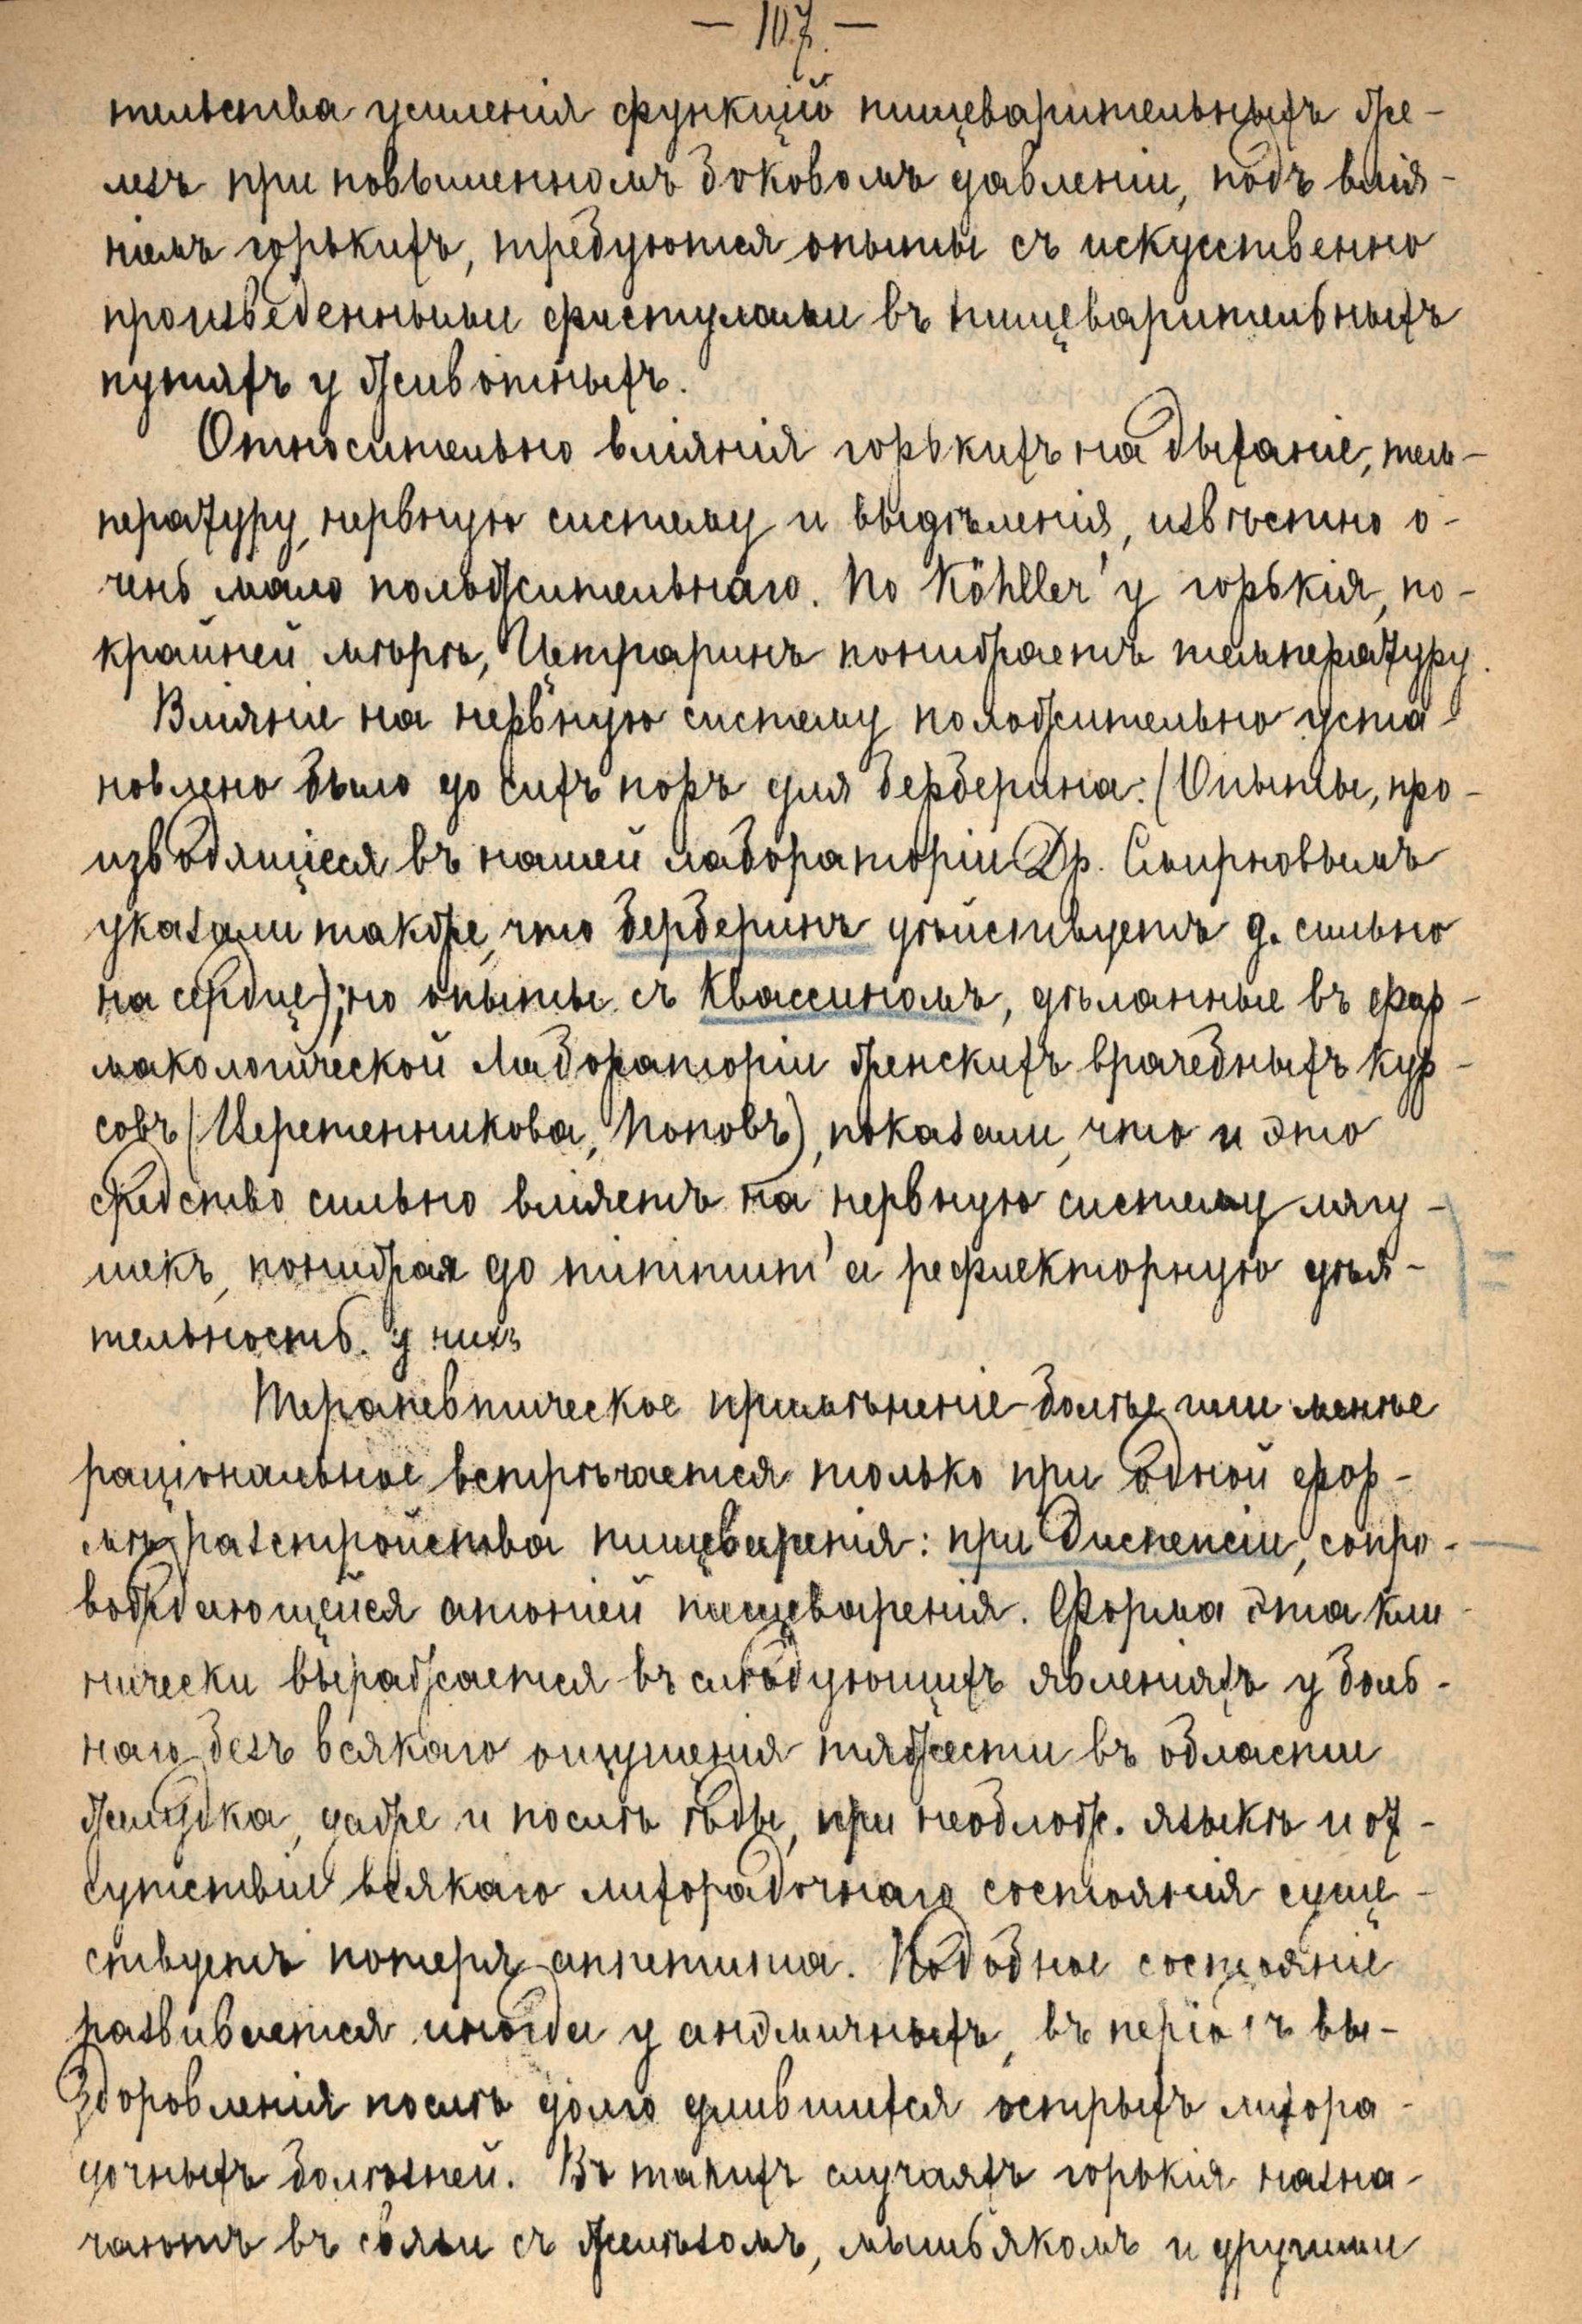 — 107. —
тельства усиленія функцій пищеварительныхъ же-
лезъ при повышенномъ боковомъ давленіи, подъ влія-
ніемъ горькихъ, требуются опыты съ искусственно
произведенными фистулами въ пищеварительныхъ
путяхъ у животныхъ.
Относительно вліянія горькихъ на дыханіе, тем-
пературу, нервную систему и выдѣленія, извѣстно о-
чень мало положительнаго. По Köhller'у горькія, по-
крайней мѣрѣ, Цетраринъ понижаетъ температуру.
Вліяніе на нервную систему положительно уста-
новлено было до сихъ поръ для берберина. (Опыты, про-
изводящіеся въ нашей лабораторіи Др. Смирновымъ
указали также, что берберинъ дѣйствуетъ д. сильно
на сердце); но опыты съ квассиномъ, дѣланные въ фар-
макологической Лабораторіи женскихъ врачебныхъ кур-
совъ (Веретенникова, Поповъ), показали, что и это
средство сильно вліяетъ на нервную систему лягу-
шекъ, понижая до minimum'а рефлекторную дѣя-
тельность. у нихъ
Терапевтическое примѣненіе болѣе или менѣе
раціональное встрѣчается только при одной фор-
мѣ разстройства пищеваренія: при диспепсіи, сопро-
вождающейся атоніей пищеваренія. Форма эта кли-
нически выражается въ слѣдующихъ явленіяхъ у боль-
наго безъ всякаго ощущенія тяжести въ области
желудка, даже и послѣ ѣды, при необлож. языкѣ и от-
сутствіи всякаго лихорадочнаго состоянія суще-
ствуетъ потеря аппетита. Подобное состояніе
развивается иногда у анэмичныхъ, въ періодъ вы-
здоровленія послѣ долго длившихся острыхъ лихора-
дочныхъ болѣзней. Въ такихъ случаяхъ горькія назна-
чаютъ въ связи съ желѣзомъ, мышьякомъ и другими